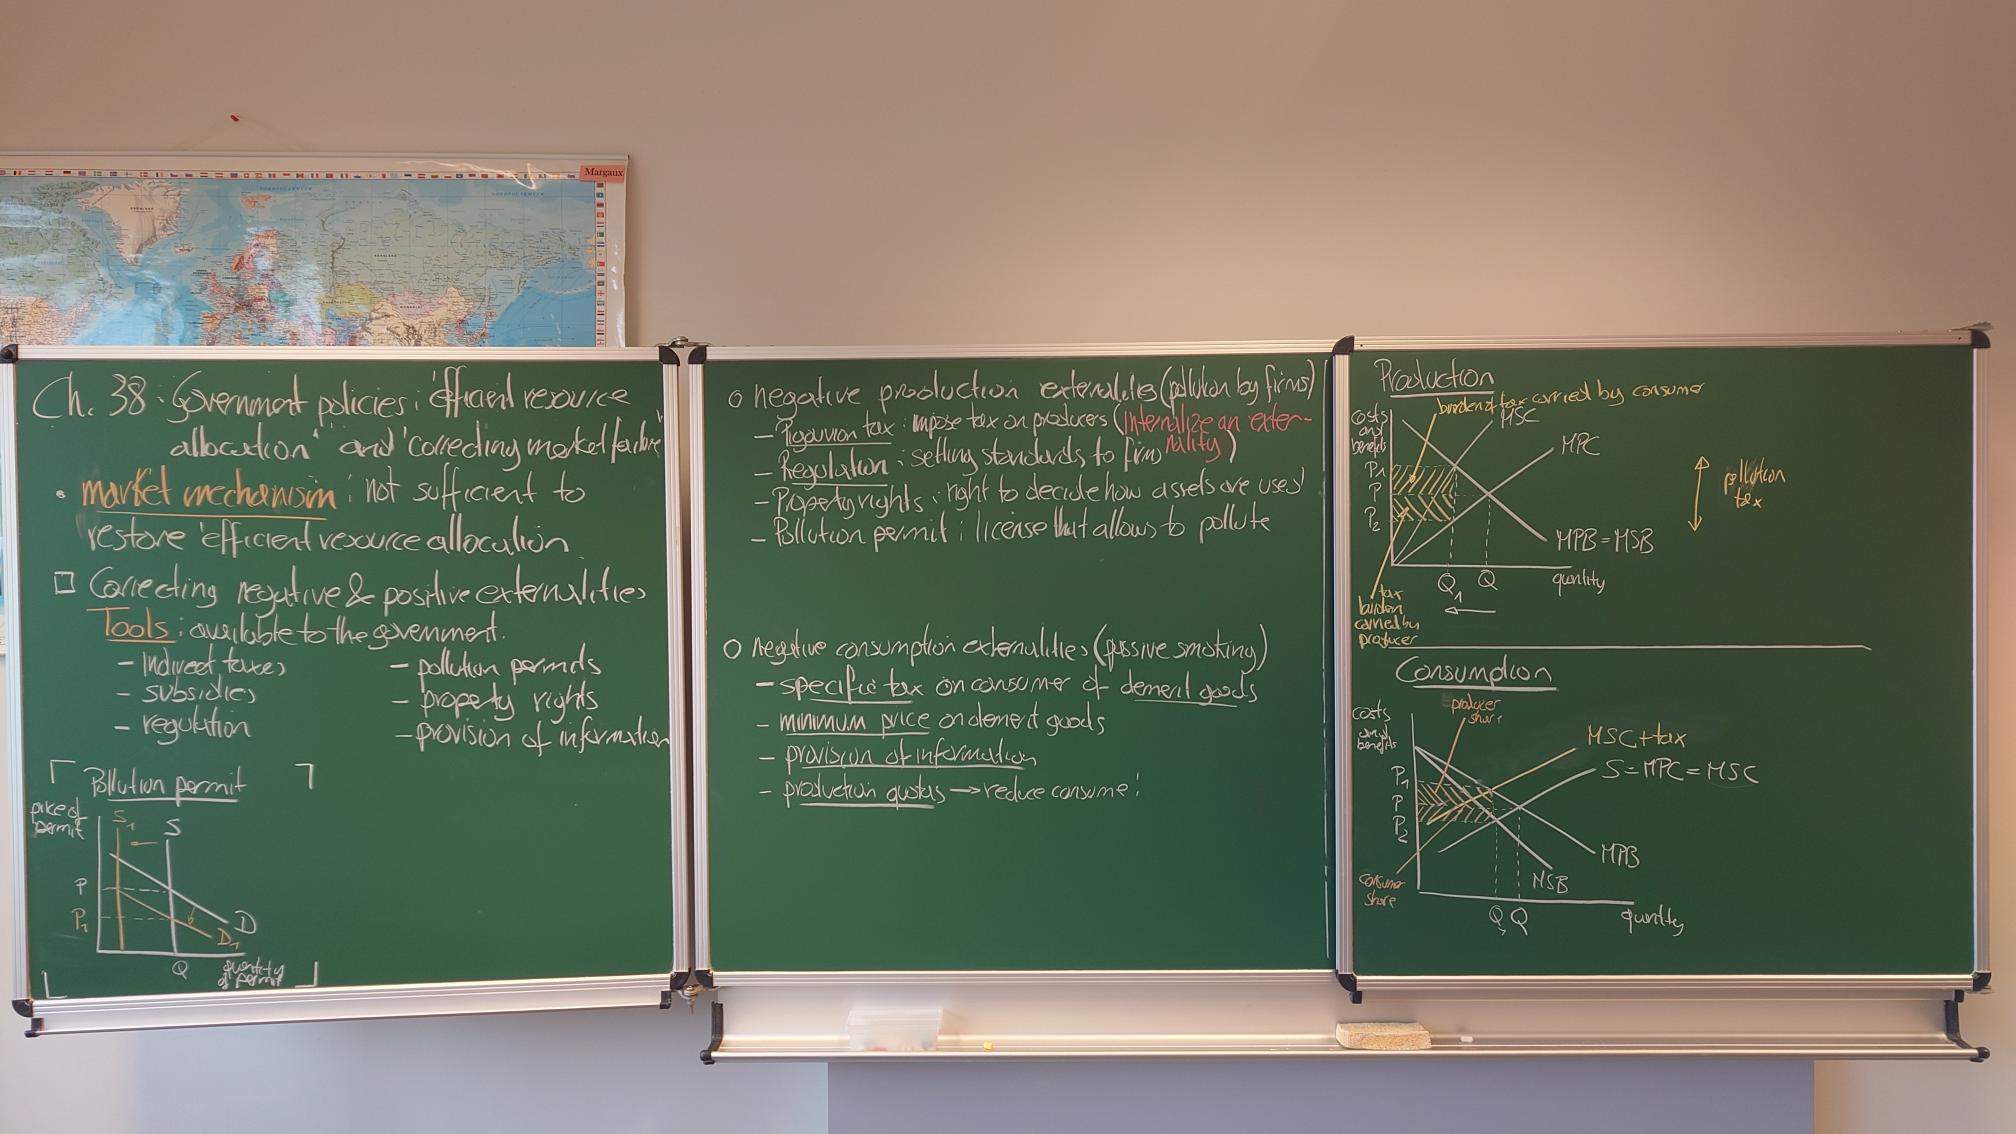 Margaux
Ch. 38 : Government policies : 'efficient resource
allocation' and 'correcting market failure'
• market mechanism : not sufficient to
restore 'efficient resource allocation
□ Correcting negative & positive externalities
Tools : available to the government.
- indirect taxes
- subsidies
- regulation
- pollution permits
- property rights
- provision of information
Pollution permit
price of
permit
S1
S
P
P1
D
D1
Q
quantity
of permit
o negative production externalities (pollution by firms)
- Pigouvion tax : impose tax on producers (internalize an exter-
nality)
- Regulation : setting standards to firms
- Property rights : right to decide how assets are used
- Pollution permit : license that allows to pollute
o negative consumption externalities (passive smoking)
- specific tax on consumer of demerit goods
- minimum price on demerit goods
- provision of information
- production quotas → reduce consume!
Production
burden of tax carried by consumer
costs
and
benefits
MSC
MPC
P1
P
P2
pollution
tax
MPB = MSB
Q1
Q
quntity
tax
burden
carried by
producer
Consumption
producer
share
costs
and
benefits
MSC + tax
S = MPC = MSC
P1
P
P2
MPB
MSB
consumer
share
Q1
Q
quntity